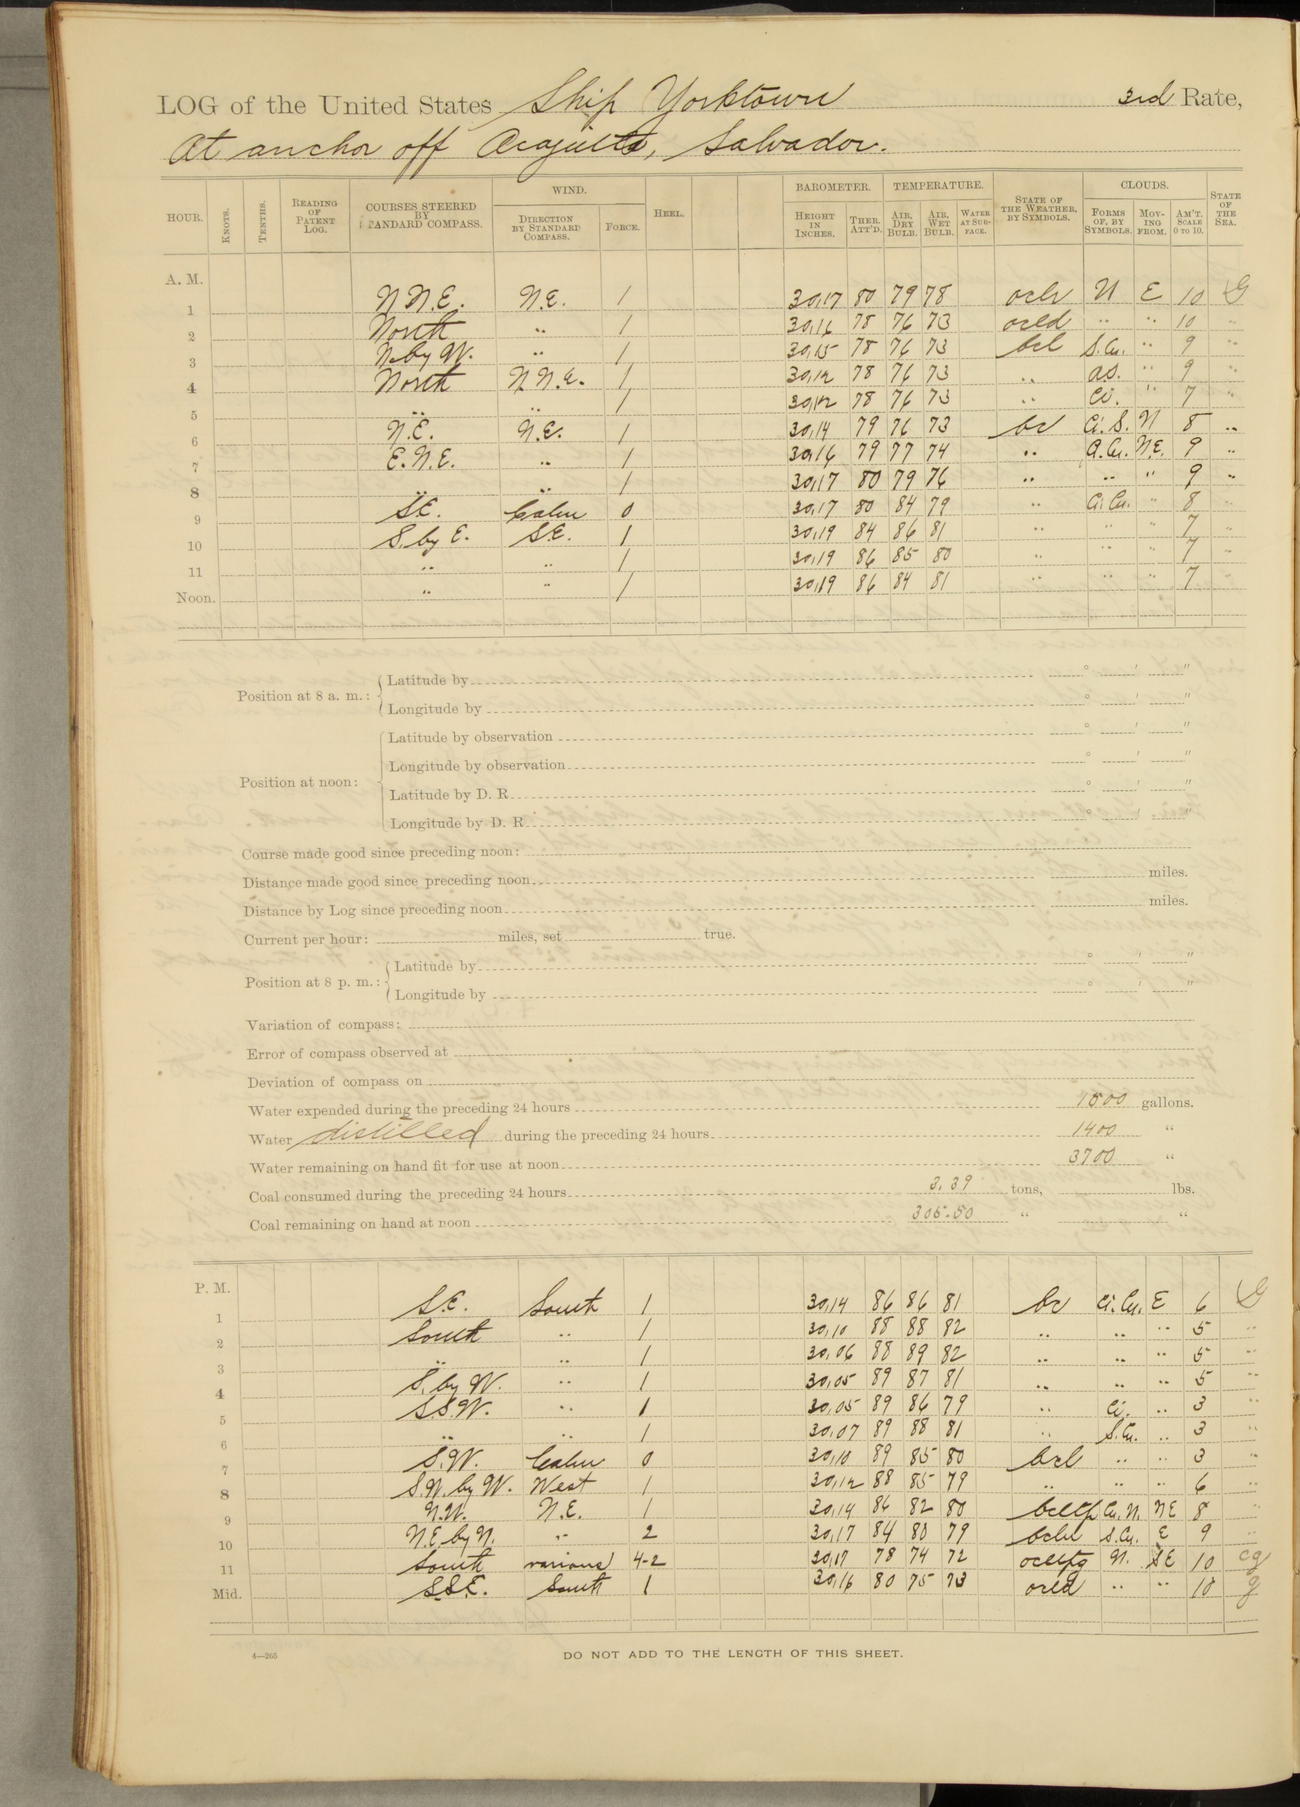 LOG of the United States Ship Yorktown 3rd Rate,
At anchor off Acajutla, Salvador.
HOUR. KNOTS. TENTHS. READING OF PATENT LOG. COURSES STEERED BY STANDARD COMPASS. WIND. DIRECTION BY STANDARD COMPASS. FORCE. HEEL. BAROMETER. HEIGHT IN INCHES. THER. ATT'D. TEMPERATURE. AIR, DRY BULB. AIR, WET BULB. WATER AT SURFACE. STATE OF THE WEATHER, BY SYMBOLS. CLOUDS. FORMS OF, BY SYMBOLS. MOVING FROM. AM'T. SCALE 0 TO 10. STATE OF THE SEA.
A. M.
1 N.N.E. N.E. 1 30,17 80 79 78 N E 10 G
2 North " 1 30,16 78 76 73 orld " " 10 "
3 N. by W. " 1 30,15 78 76 73 bcl S.Cu. " 9 "
4 North N.N.E. 1 30,12 78 76 73 " a.s. " 9 "
5 " " 1 30,12 78 76 73 " Ci. " 7 "
6 N.E. N.E. 1 30,14 79 76 73 bc Ci.S. N 8 "
7 E.N.E. " 1 30,16 79 77 74 " A.Cu. N.E. 9 "
8 " " 1 30,17 80 79 76 " " " 9 "
9 S.E. Calm 0 30,17 80 84 79 " Ci.Cu. " 8 "
10 S. by E. S.E. 1 30,19 84 86 81 " " " 7 "
11 " " 1 30,19 86 85 80 " " " 7 "
Noon. " " 1 30,19 86 84 81 " " " 7
Position at 8 a. m.: Latitude by ° ′ ″
Longitude by ° ′ ″
Position at noon: Latitude by observation ° ′ ″
Longitude by observation ° ′ ″
Latitude by D. R. ° ′ ″
Longitude by D. R. ° ′ ″
Course made good since preceding noon:
Distance made good since preceding noon miles.
Distance by Log since preceding noon miles.
Current per hour: miles, set true.
Position at 8 p. m.: Latitude by ° ′ ″
Longitude by ° ′ ″
Variation of compass:
Error of compass observed at
Deviation of compass on
Water expended during the preceding 24 hours 1500 gallons.
Water distilled during the preceding 24 hours 1400 "
Water remaining on hand fit for use at noon 3700 "
Coal consumed during the preceding 24 hours 3.39 tons, lbs.
Coal remaining on hand at noon 305.50 " "
P. M.
1 S.E. South 1 30,14 86 86 81 bc Ci.Cu. E 6 G
2 South " 1 30,10 88 88 82 " " " 5 "
3 " " 1 30,06 88 89 82 " " " 5 "
4 S. by W. " 1 30,05 89 87 81 " " " 5 "
5 S.S.W. " 1 30,05 89 86 79 " Ci. " 3 "
6 " " 1 30,07 89 88 81 " S.Cu. " 3 "
7 S.W. Calm 0 30,10 89 85 80 bcl " " 3 "
8 S.W. by W. West 1 30,12 88 85 79 " " " 6 "
9 N.W. N.E. 1 30,14 86 82 80 Cu.N. NE 8 "
10 N.E. by N. " 2 30,17 84 80 79 S.Cu. E 9 "
11 South various 4-2 30,17 78 74 72 N. SE 10 cg
Mid. S.S.E. South 1 30,16 80 75 73 orld " " 10 g
4—265
DO NOT ADD TO THE LENGTH OF THIS SHEET.